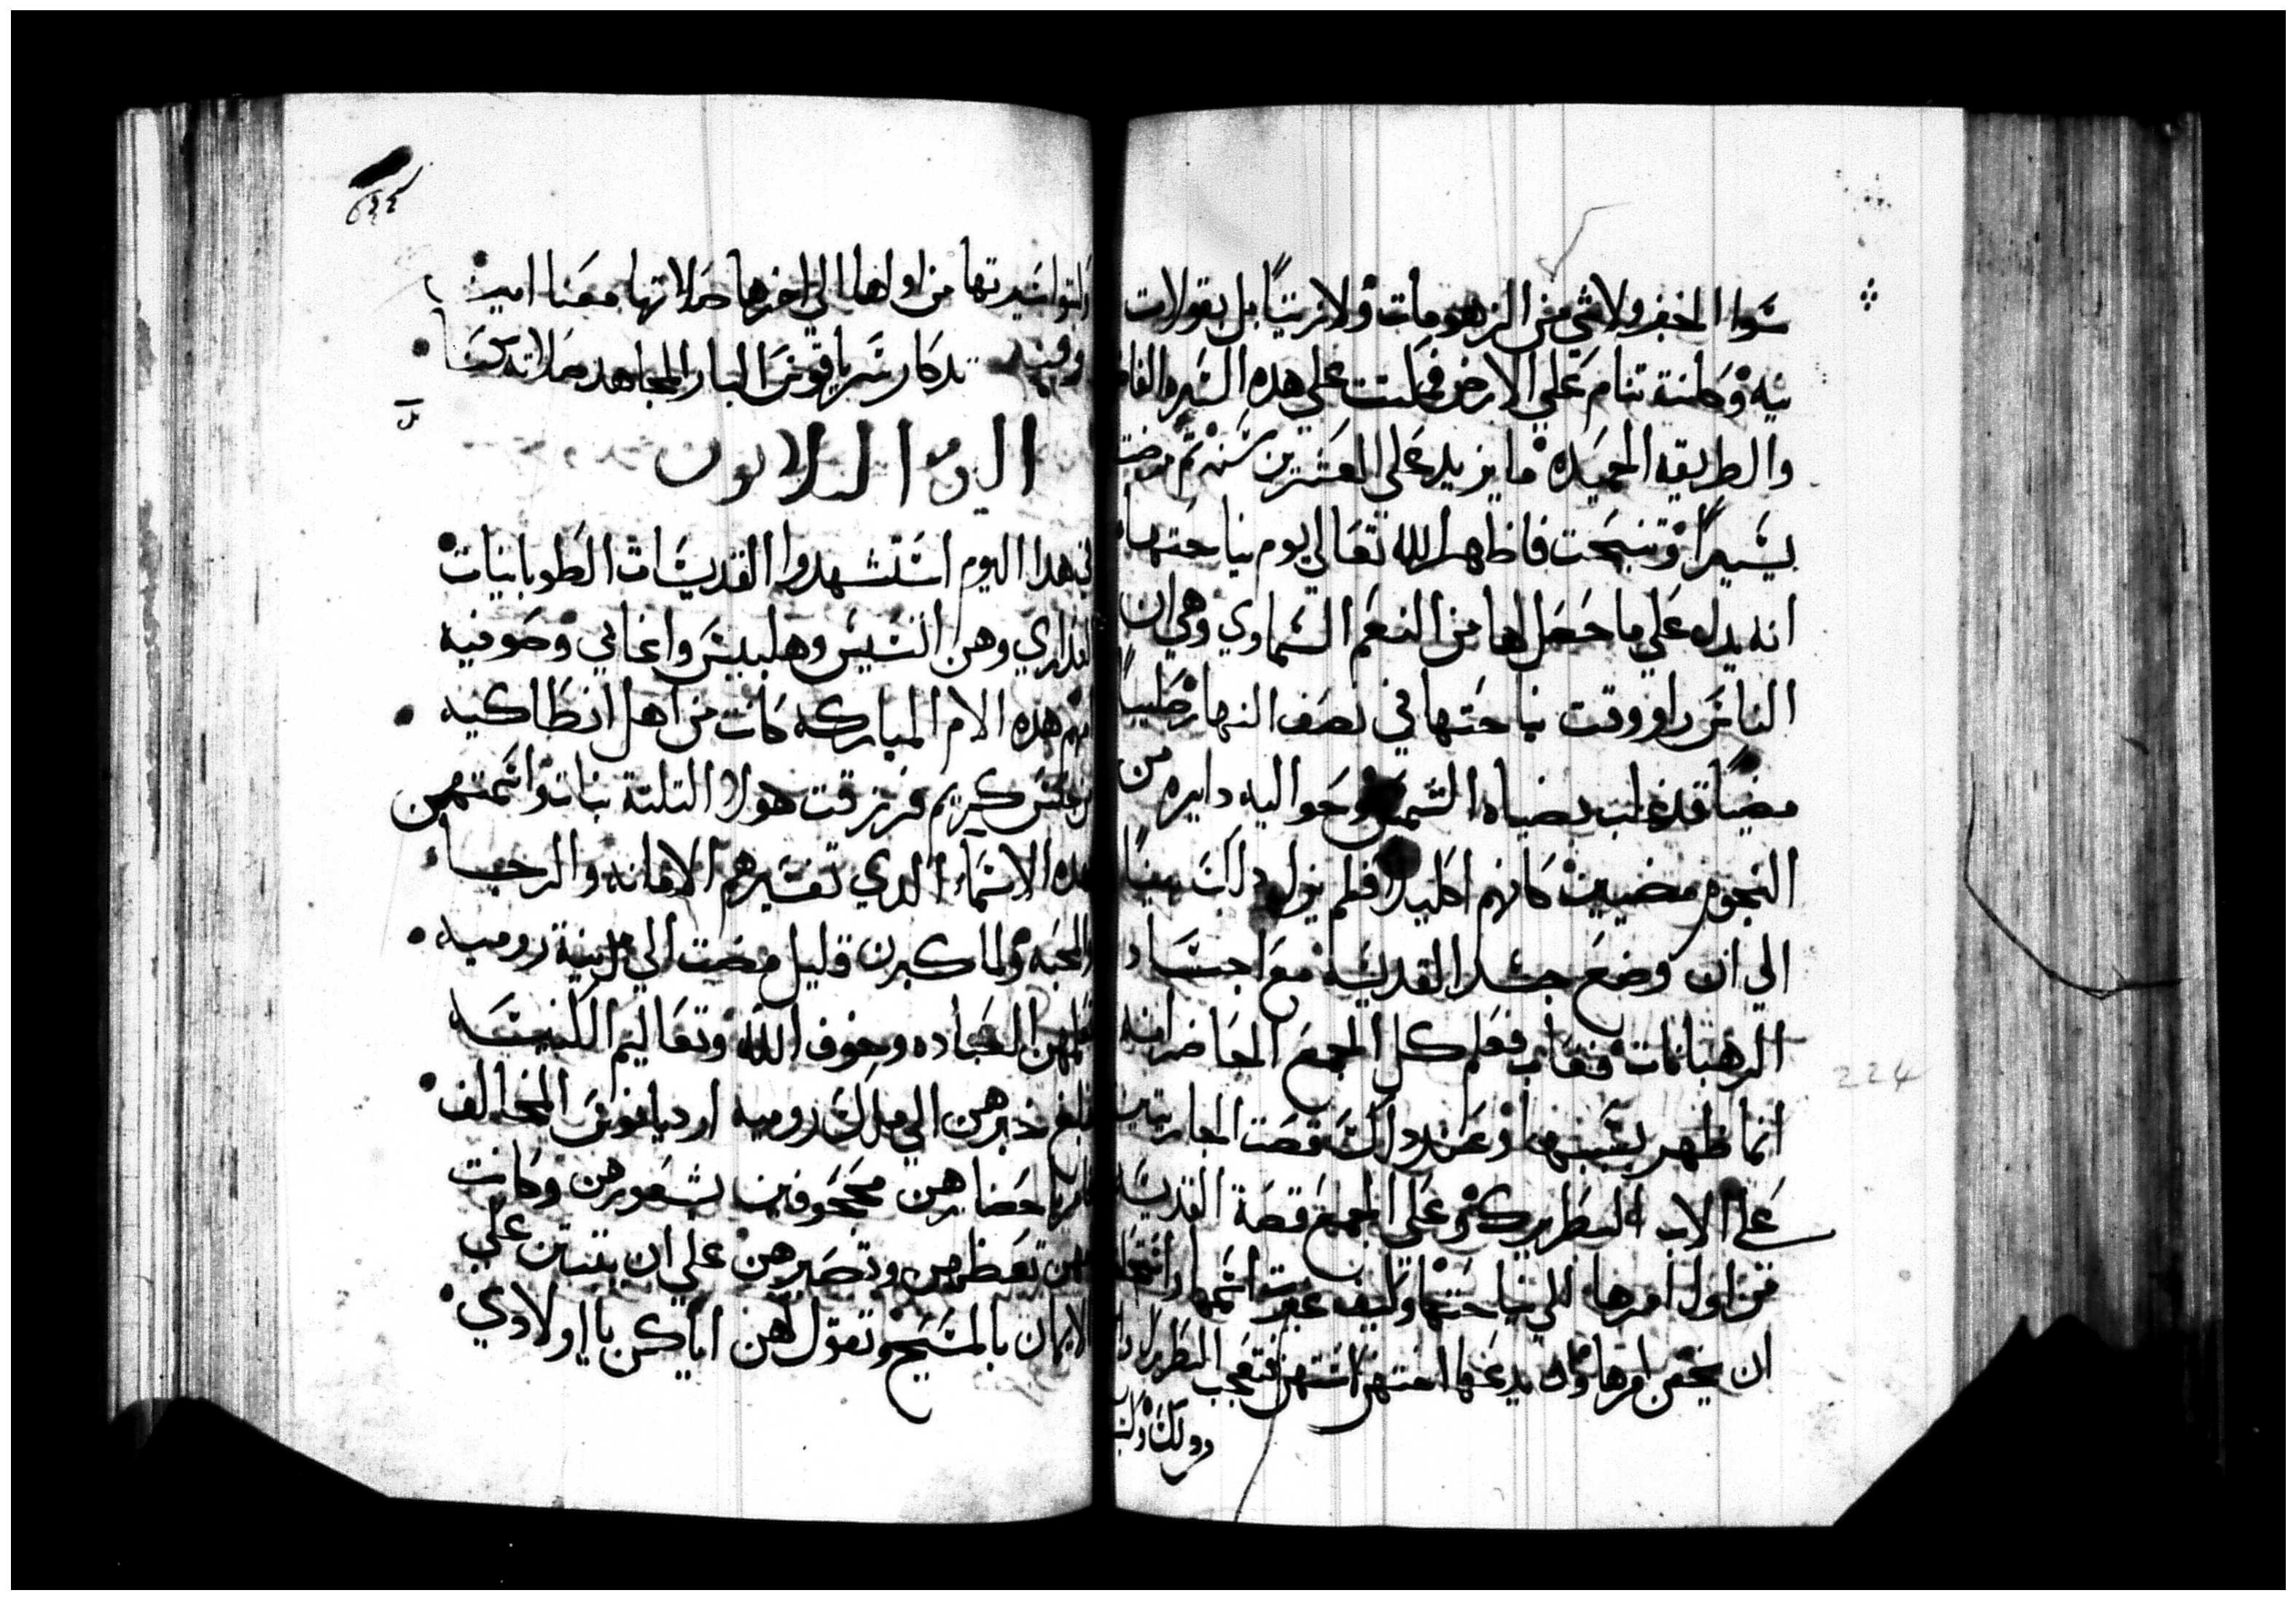 سوا الخبز ولا شي من الزهومات ولا زيتاً بل بقولات
نيه وكانت تنام علي الارض فمكتت علي هده السيره الفاض
والطريقه الحميده ما يزيد علي العشرين سنه تم مرضت
يسيراً وتنيحت فاظهر الله تعالي يوم نياحتها
انه يدل علي ما حصل لها من النعم السماوي وهي ان
الناس راو وقت نياحتها في نصف النهار صليباً
مضياً قد غلب بضياه الشمس وحواليه دايره من
النجوم مضيين كانهم اكليلا فلم يزل دلك بيناً
الي ان وضع جسد القديسه مع اجساد
الرهبانات فغاب فعلم كل الجمع الحاضر انه
انما ظهر بسببها وعند دلك قصت الجاريتين
علي الاب البطريرك وعلي الجمع قصة القديسه
من اول امرها الي نياحتها وكيف غيرت اسمها
ان يخفي امرها وان يدعوها امتهن استهن فتعجب البطريرك
دلك
سيرتها من اولها الي اخرها صلاتها معنا امين
وفيه تدكار سرياقوس البار المجاهد صلاته تحرسنا
ل
اليوم الثلاثون
في هدا اليوم استشهدوا القديسات الطوبانيات
العداري وهن انسيس وهلبيس واغابي وصوفيه
امهم هده الام المباركه كانت من اهل انطاكيه
من جنس كريم فرزقت هولا التلتة بنات واسمتهن
هده الاسماء الدي تفسيرهم الامانه والرجا
والمحبه ولما كبرن قليل مضت الي مدينة روميه
تعلمهن العباده وخوف الله وتعاليم الكنيسه
فبلغ خبرهن الي ملك روميه ارديانوس المخالف
فامر باحضارهن مجحوفين بشعورهن وكانت
امهن تعظهن وتصبرهن علي ان يتبتن علي
الايمان بالمسيح وتقول لهن اياكن يا اولادي
224